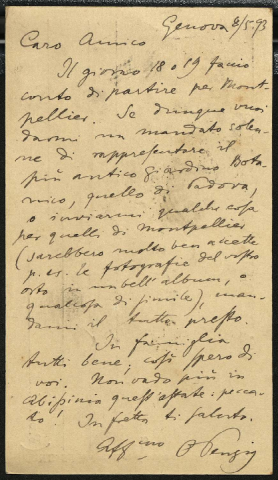 Genova 8/5.93
Caro Amico
Il giorno 18 o 19 faccio
conto di partire per Mont-
pellier. Se dunque vuoi
darmi un mandato solen-
ne di rappresentare il
più antico giardino Bota
nico, quello di Padova,
o inviarmi qualche cosa
per quelli di Montpellier
(sarebbero molto bene accette
p. es. le fotografie del vostro
orto in un bell'album, o
qualcosa di simile), man-
dami il tutto presto.
In famiglia
tutti bene; così spero di
voi. Non vado più in
Abissinia quest'estate: pecca-
to! In fretta ti saluto.
Aff.mo
O Penzig